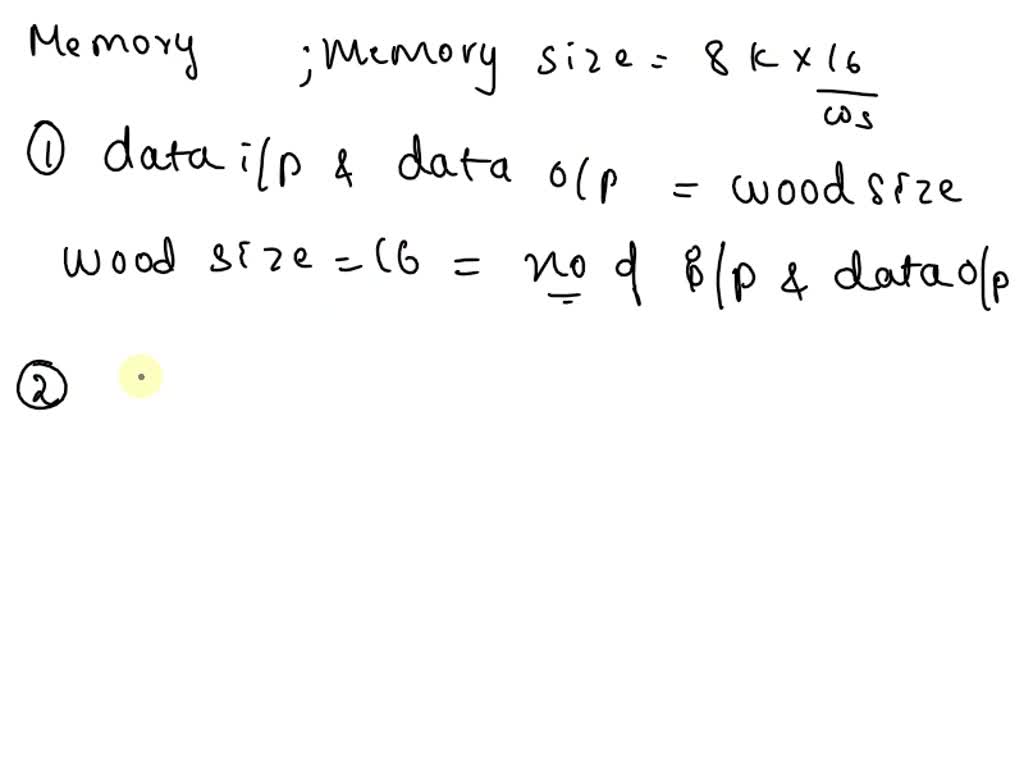 Memory ; Memory size = 8 K × 16
ws
① data i/p & data o/p = wood size
wood size = 16 = no of i/p & data o/p
②